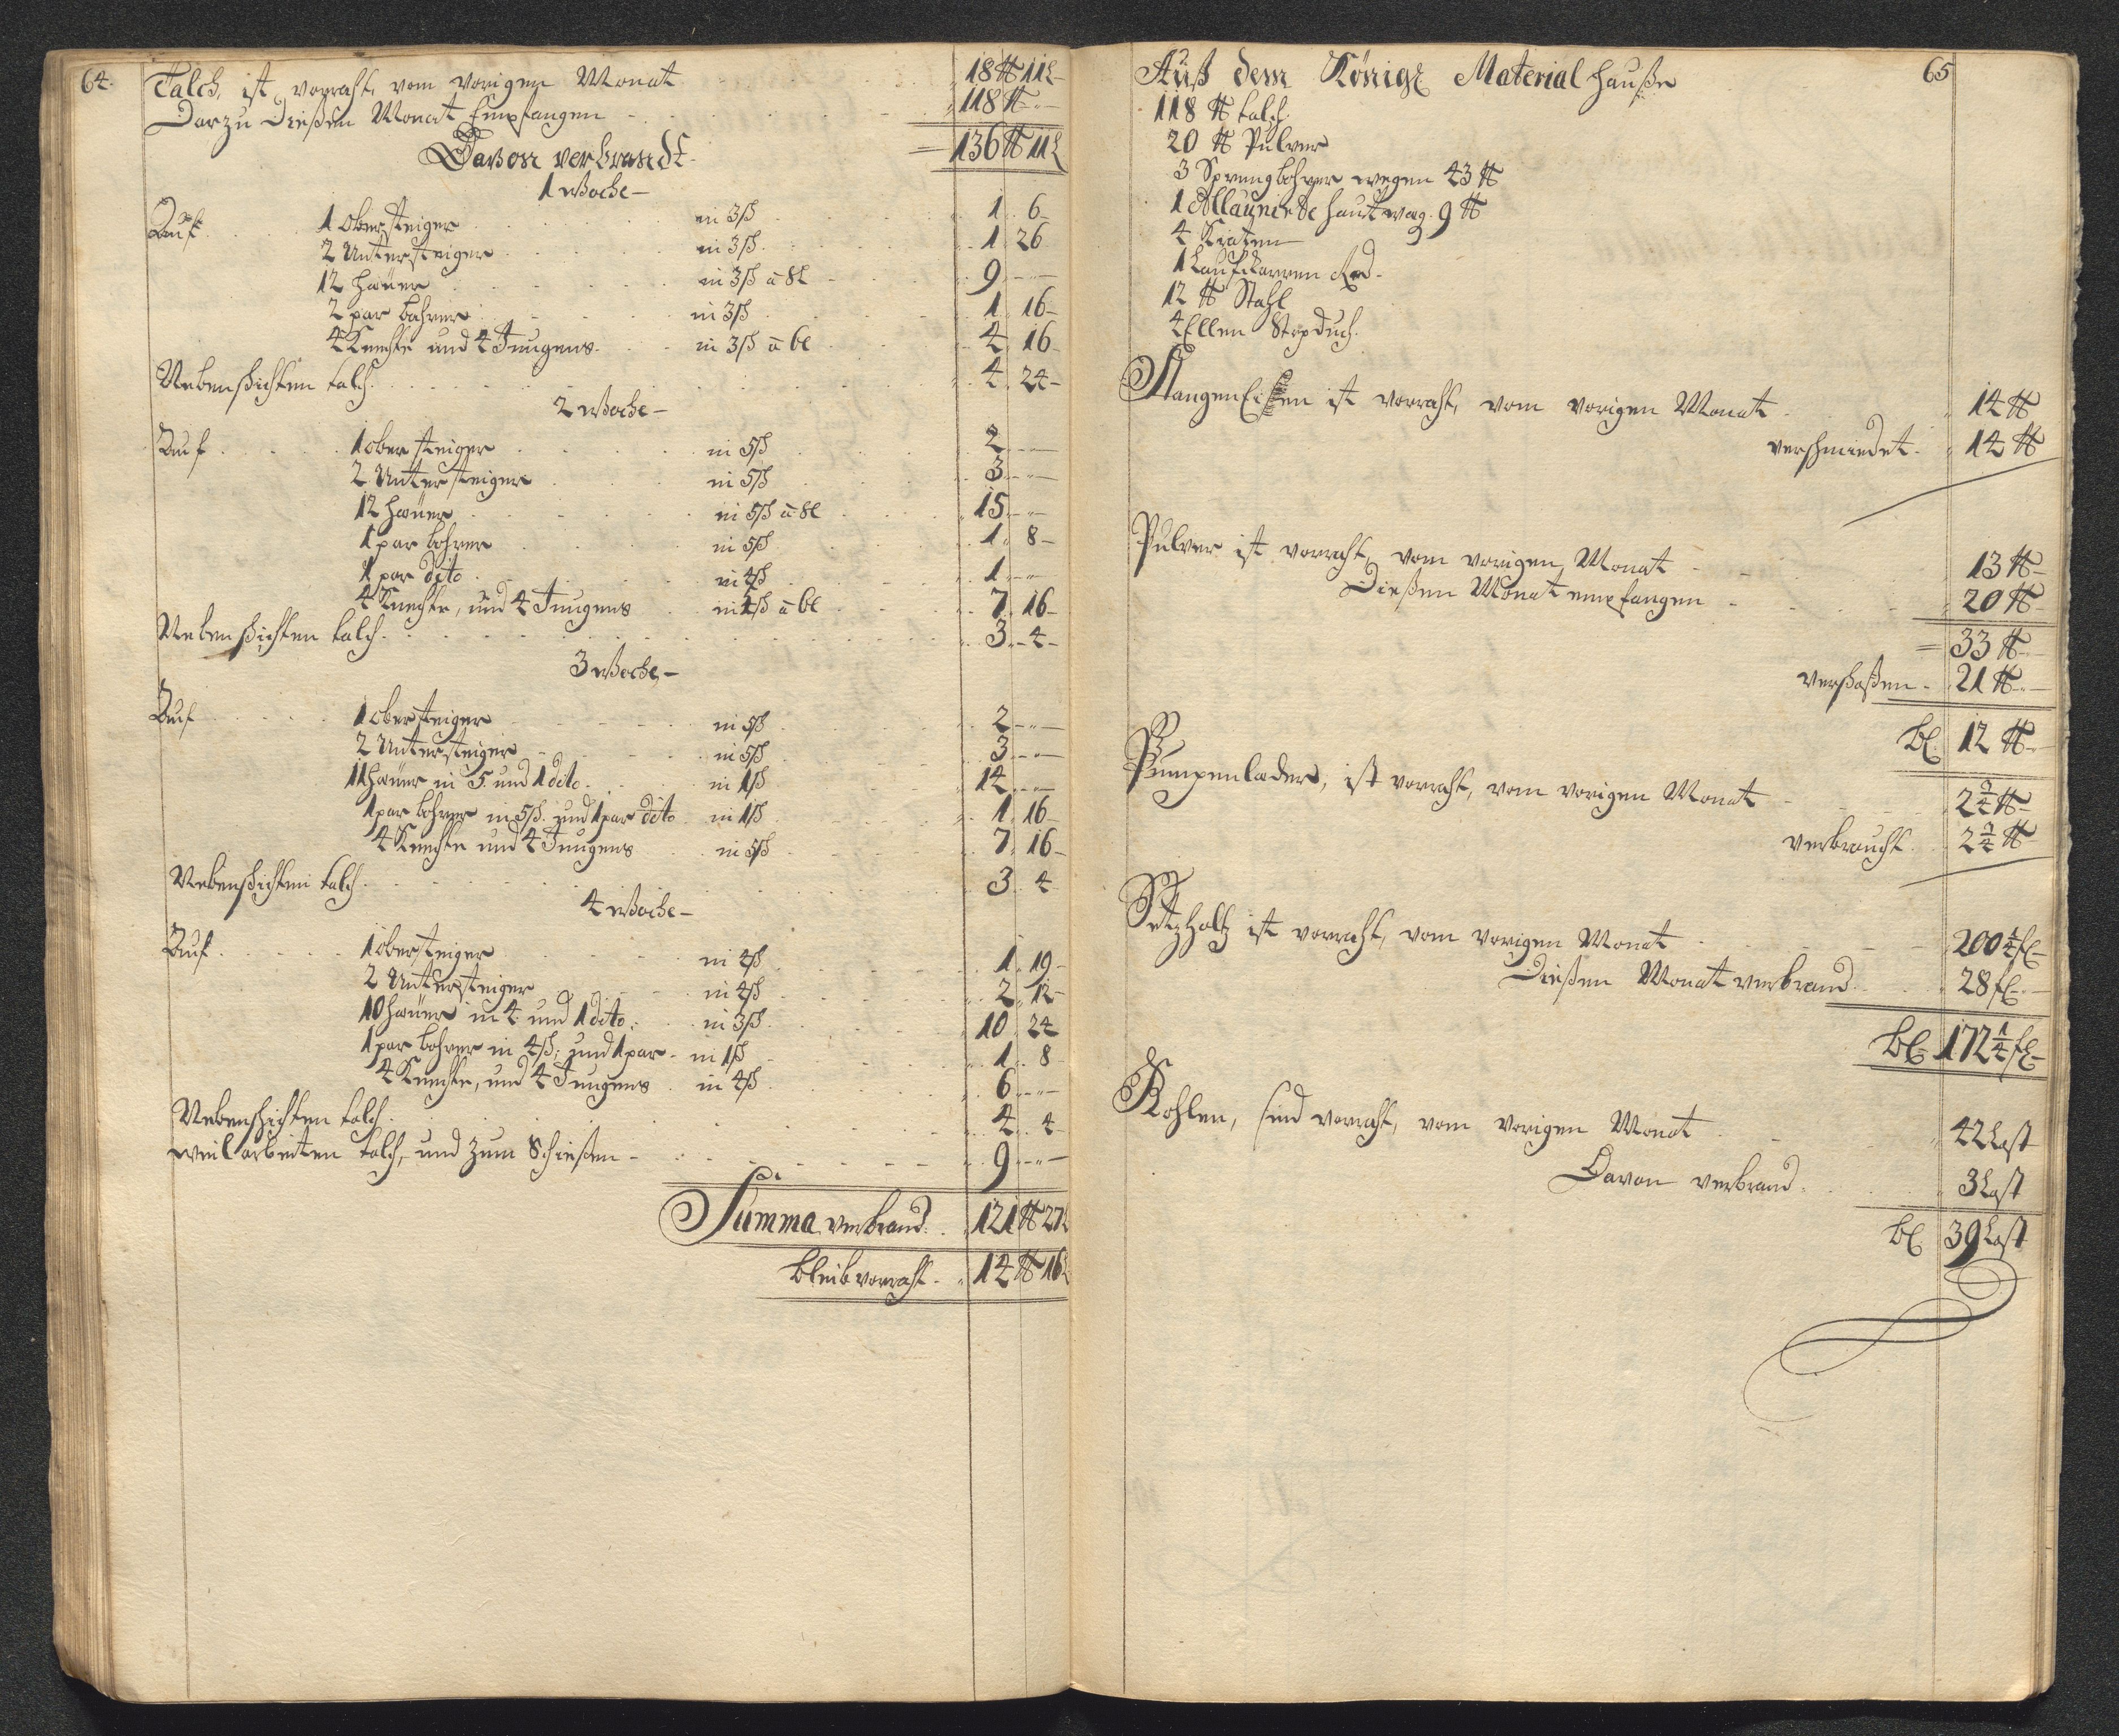 64.
Talch, ist vorraht, vom vorigen Monat 18 ℔ 11 L
Darzu Dießen Monat Empfangen 118 ℔
Davon verbrandt = 136 ℔ 11 L
1 Woche
Auf 1 Obersteiger in 3ß 1 6
2 Untersteiger in 3ß 1 26
12 häuer in 3ß a 8l 9
2 par bohrer in 3ß 1 16
4 Knechte und 4 Jungens in 3ß a 6l 4 16
Nebenschichten talch 4 24
2 Woche
Auf 1 obersteiger in 5ß 2
2 Untersteiger in 5ß 3
12 häuer in 5ß a 8l 15
1 par bohrer in 5ß 1 8
1 par dito in 4ß 1
4 Knechte, und 4 Jungens in 5ß a 6l 7 16
Nebenschichten talch 3 4
3 Woche
Auf 1 obersteiger in 5ß 2
2 Untersteiger in 5ß 3
11 häuer in 5 und 1 dito in 1ß 14
1 par bohrer in 5ß und 1 par dito in 1ß 1 16
4 Knechte und 4 Jungens in 5ß 7 16
Nebenschichten talch 3 4
4 Woche
Auf 1 obersteiger in 4ß 1 19
2 Untersteiger in 4ß 2 12
10 häuer in 4 und 1 dito in 3ß 10 24
1 par bohrer in 4ß und 1 par in 1ß 1 8
4 Knechte, und 4 Jungens in 4ß 6
Nebenschichten talch 4 4
weilarbeiten talch, und zum Schießen 9
Summa verbrand 121 ℔ 27 L
bleib vorraht 14 ℔ 16 L
65
Auß dem Königl Material Hauße
118 ℔ talch
20 ℔ Pulver
3 Sprengbohrer wegen 43 ℔
1 haut wag. 9 ℔
4
1 Laufkarren Rad
12 ℔ Stahl
4 Ellen
Stangen Eisen ist vorraht, vom vorigen Monat 14 ℔
verschmiedet 14 ℔
Pulver ist vorraht, vom vorigen Monat 13 ℔
Dießen Monat empfangen 20 ℔
= 33 ℔
verschoßen 21 ℔
bl. 12 ℔
Pumpenlader, ist vorraht, vom vorigen Monat 2 ¼ ℔
verbraucht 2 ¼ ℔
Setzholtz ist vorraht, vom vorigen Monat 200 ¼ fl
Dießen Monat verbrand 28 fl
bl 172 ¼ fl
Kohlen, sind vorraht, vom vorigen Monat 42 Last
Davon verbrand 3 Last
bl 39 Last